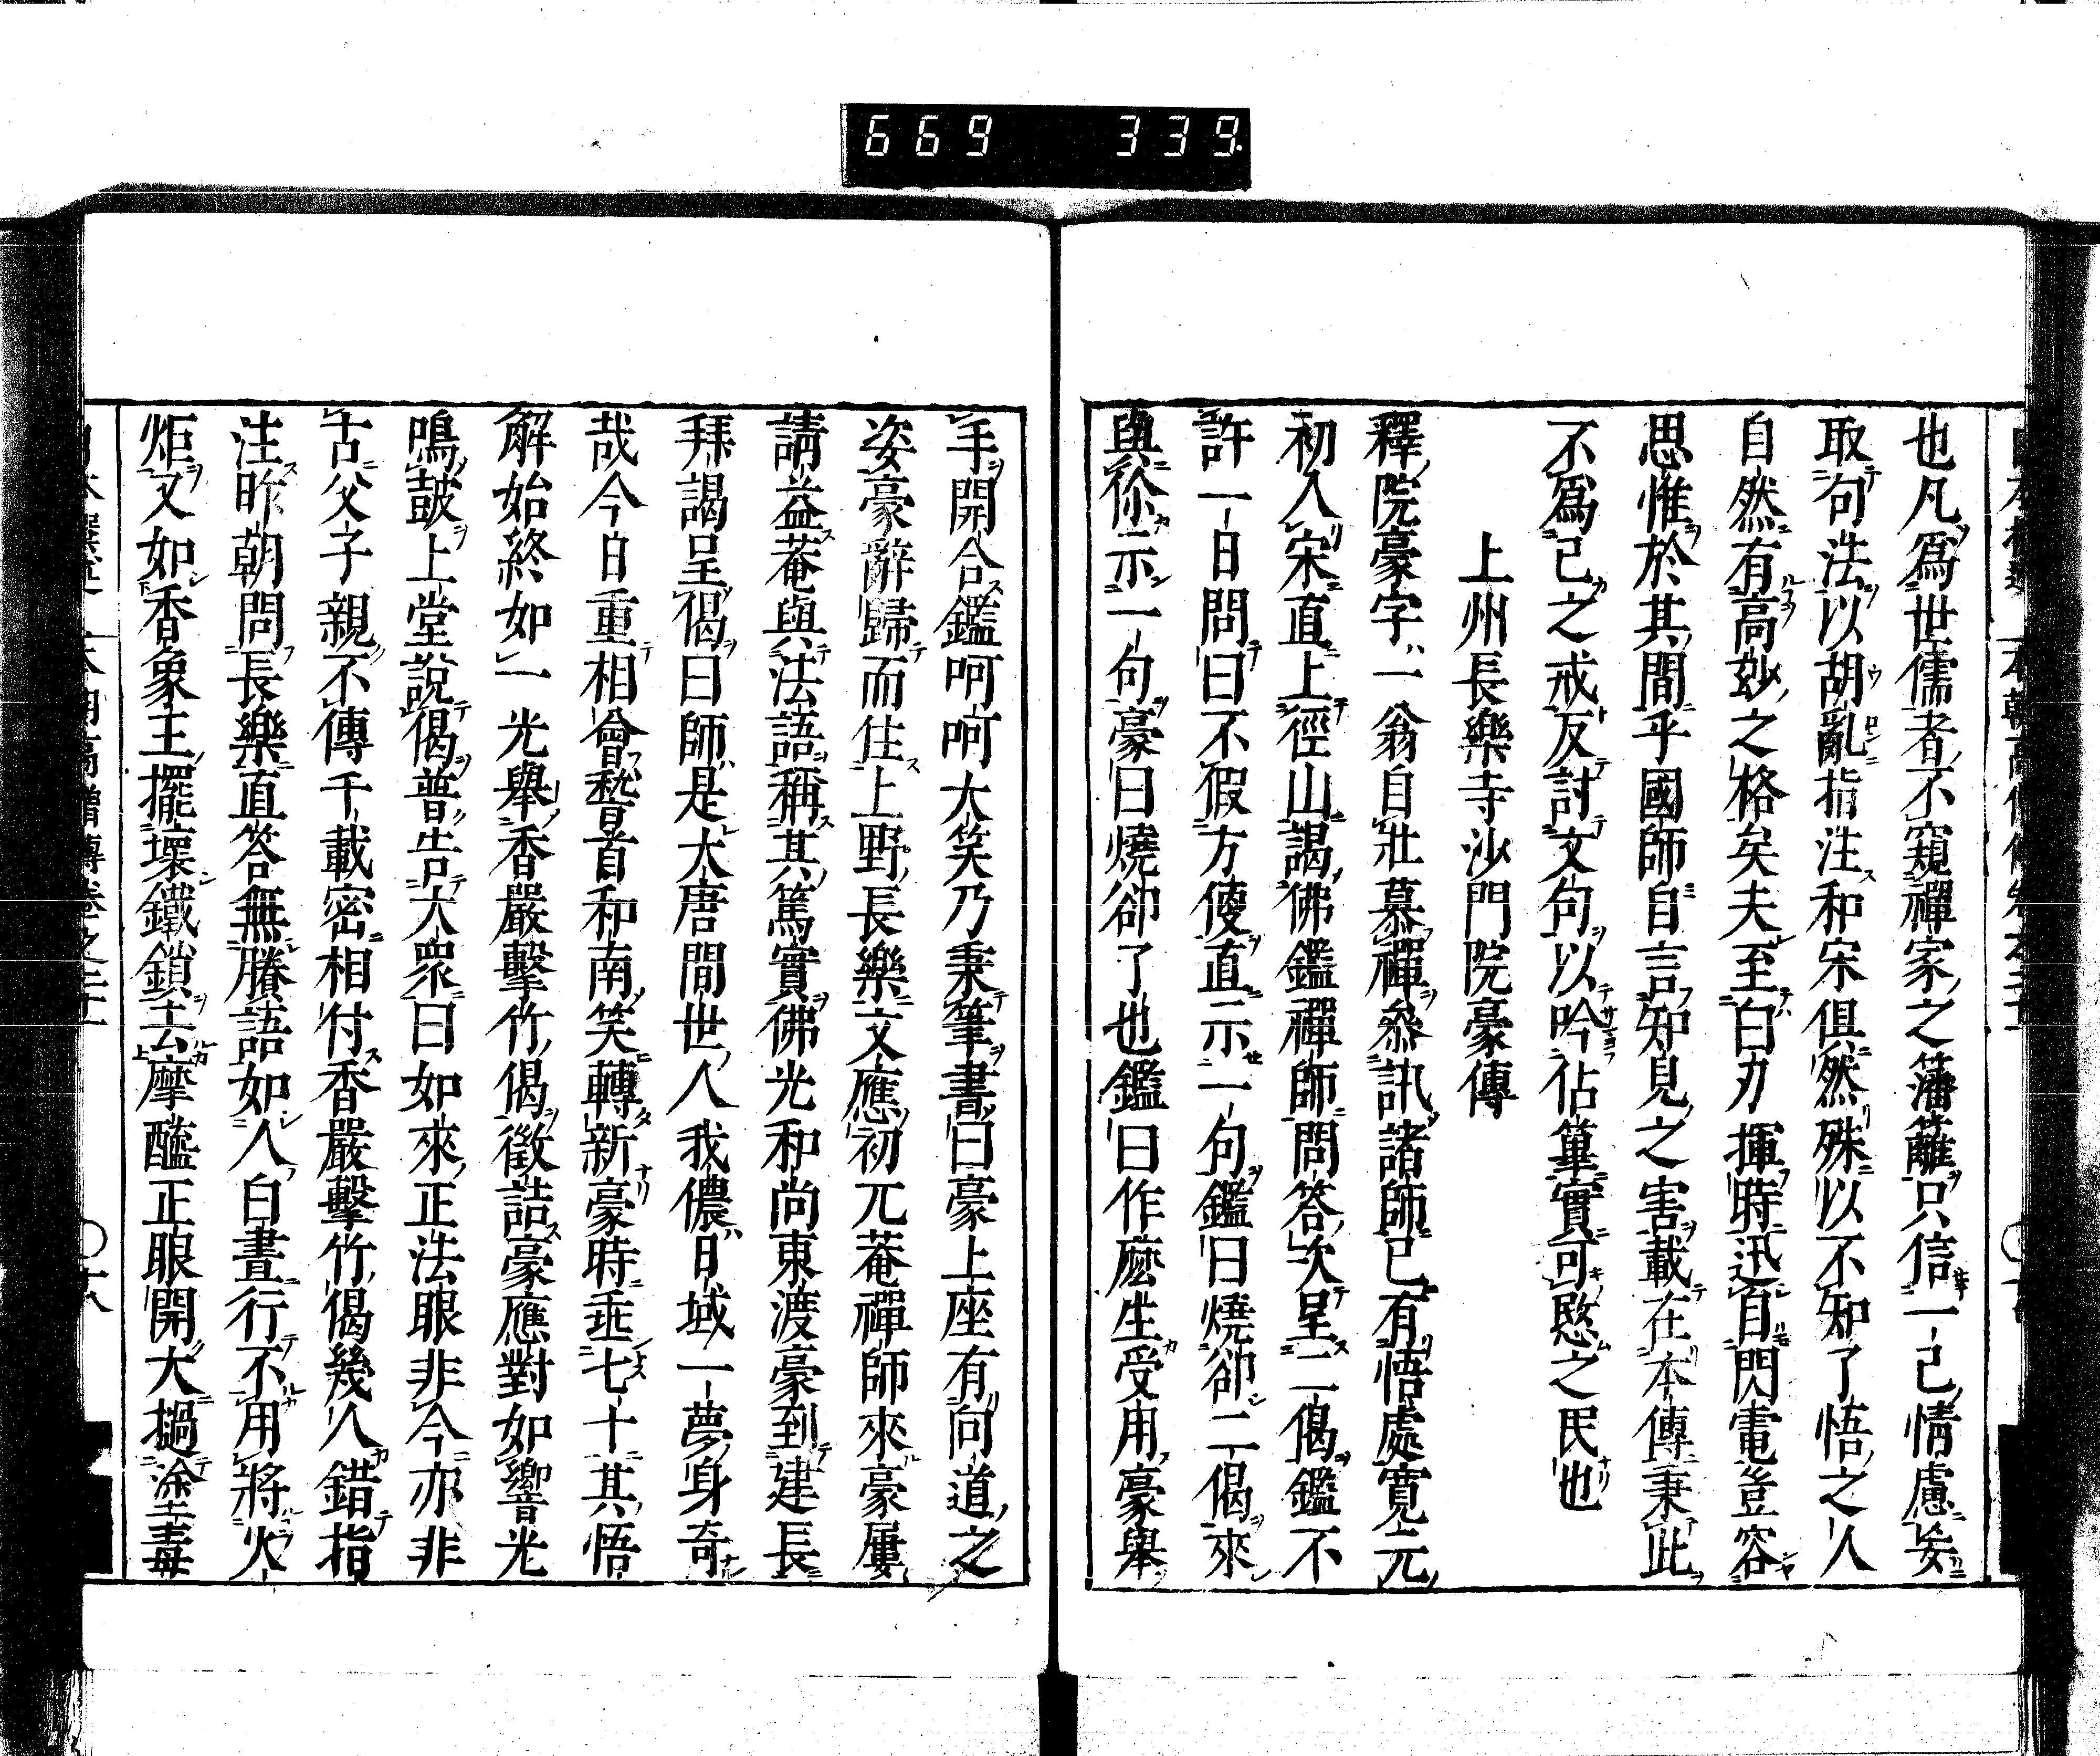 669 339
也凡爲世儒者不窺禪家之藩籬只信一己情慮妄
取句法以胡亂指注和宋俱然殊以不知了悟之人
自然有高妙之格矣夫至白刃揮時迅自閃電豈容
思惟於其間乎國師自言知見之害載在本傳秉此
不爲己之戒反討文句以吟佔篳實可愍之民也
上州長樂寺沙門院豪傳
釋院豪字一翁自壯慕禪參訊諸師已有悟處寬元
初入宋直上徑山謁佛鑑禪師問答次呈二偈鑑不
許一日問曰不假方便直示一句鑑曰燒卻二偈來
與你示一句豪曰燒卻了也鑑曰作麼生受用豪舉
手開合鑑呵呵大笑乃秉筆書曰豪上座有向道之
姿豪辭歸而住上野長樂文應初兀菴禪師來豪屢
請益菴與法語稱其篤實佛光和尚東渡豪到建長
拜謁呈偈曰師是大唐間世人我儂日域一夢身奇
哉今日重相會稽首和南笑轉新豪時垂七十其悟
解始終如一光舉香嚴擊竹偈徵詰豪應對如響光
鳴鼓上堂說偈普告大衆曰如來正法眼非今亦非
古父子親不傳千載密相付香嚴擊竹偈幾人錯指
注昨朝問長樂直答無賸語如人白晝行不用將火
炬又如香象王擺壞鐵鎖去摩醯正眼開大撾塗毒